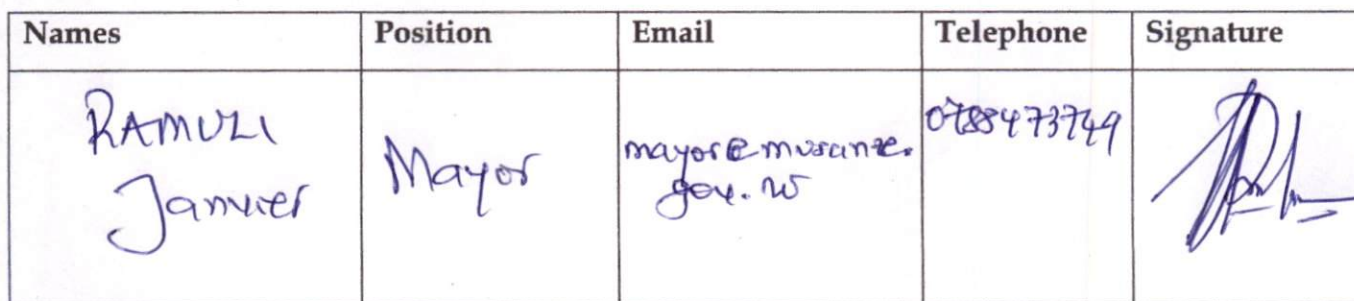 Names Position Email Telephone Signature
RAMULI
Janvier
Mayor
mayor@musanze.
gov.rw
0788473749